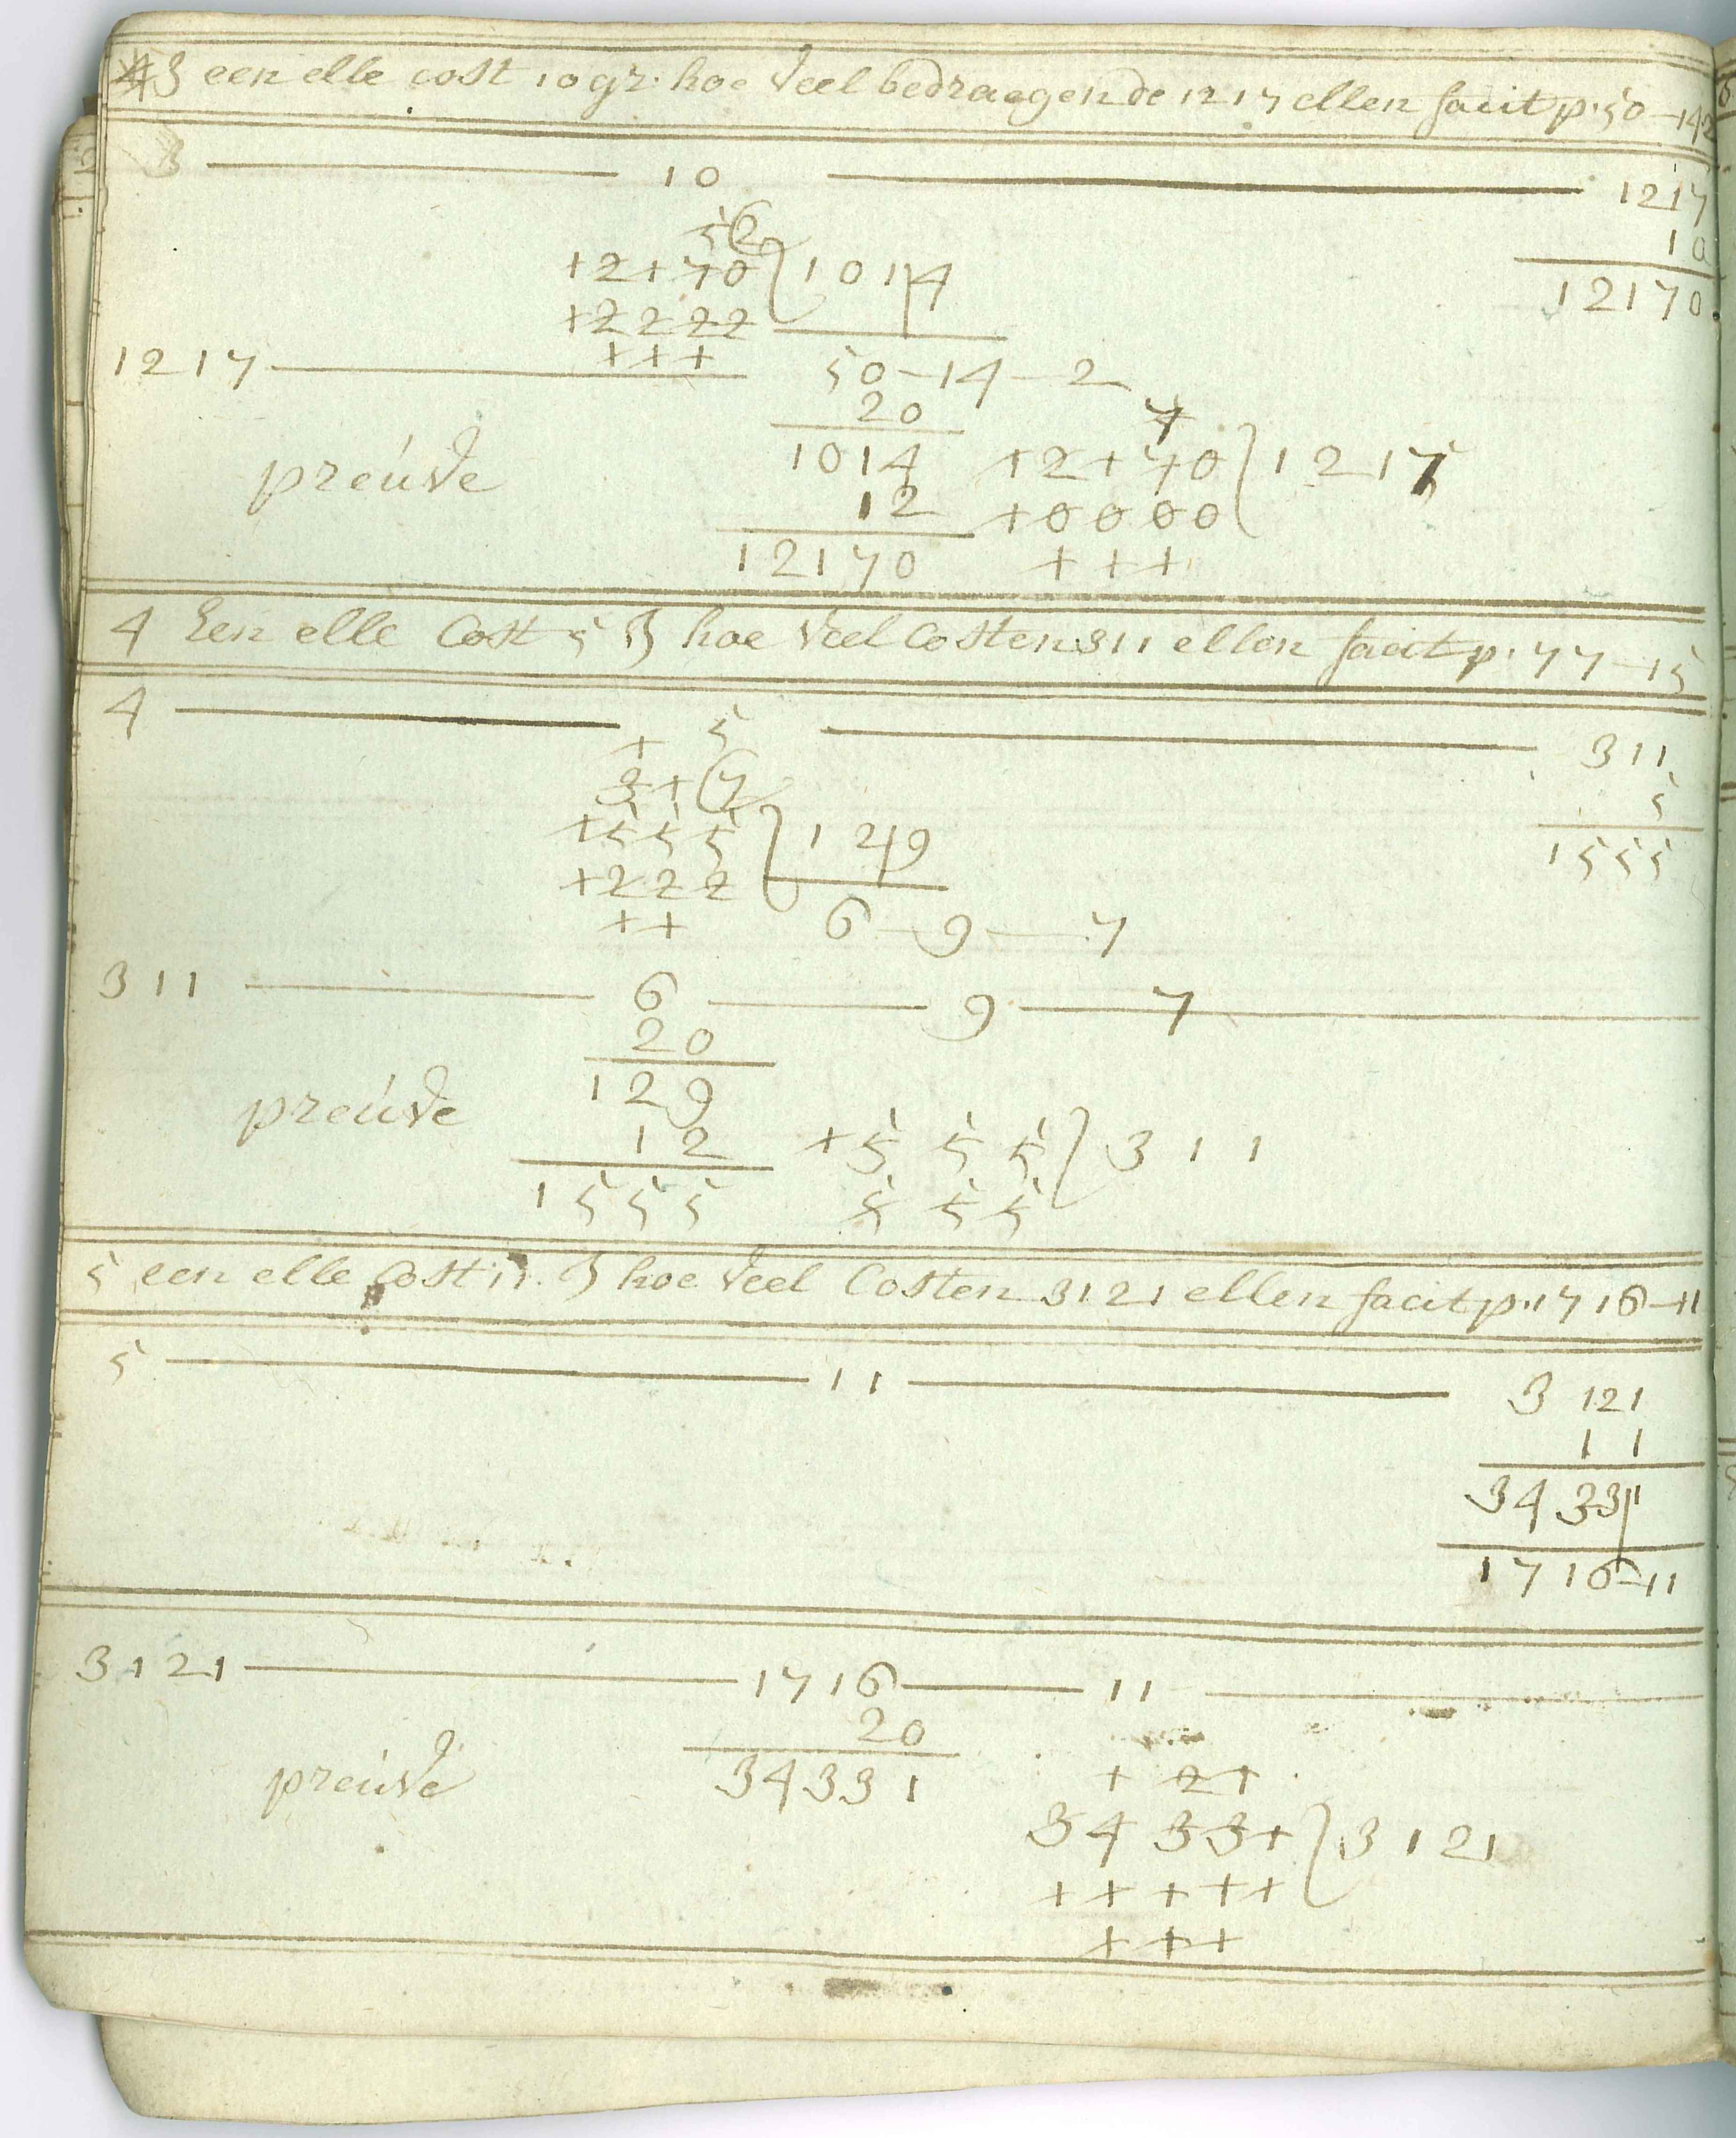 3 een elle cost 10 gr. hoe veel bedraegen de 1217 ellen facit p. 50-14-2
3 10 1217
10
12170
5 2
12170 1014
12222
111
1217 50-14-2
20
preúve 1014
12
12170
7
12170 1217
10000
111
4 Een elle Cost 5 ß hoe veel Costen 311 ellen facit p. 77-15
4 5 311
5
1555
1
317
1555 129
1222
11
6-9-7
311 6 9 7
20
preúve 129
12
1555
1555 311
555
5 een elle Cost 11 ß hoe veel Costen 3121 ellen facit p. 1716-11
5 11 3121
11
34331
1716-11
3121 1716 11
20
preúve 34331
1 21
34331 3121
11111
111